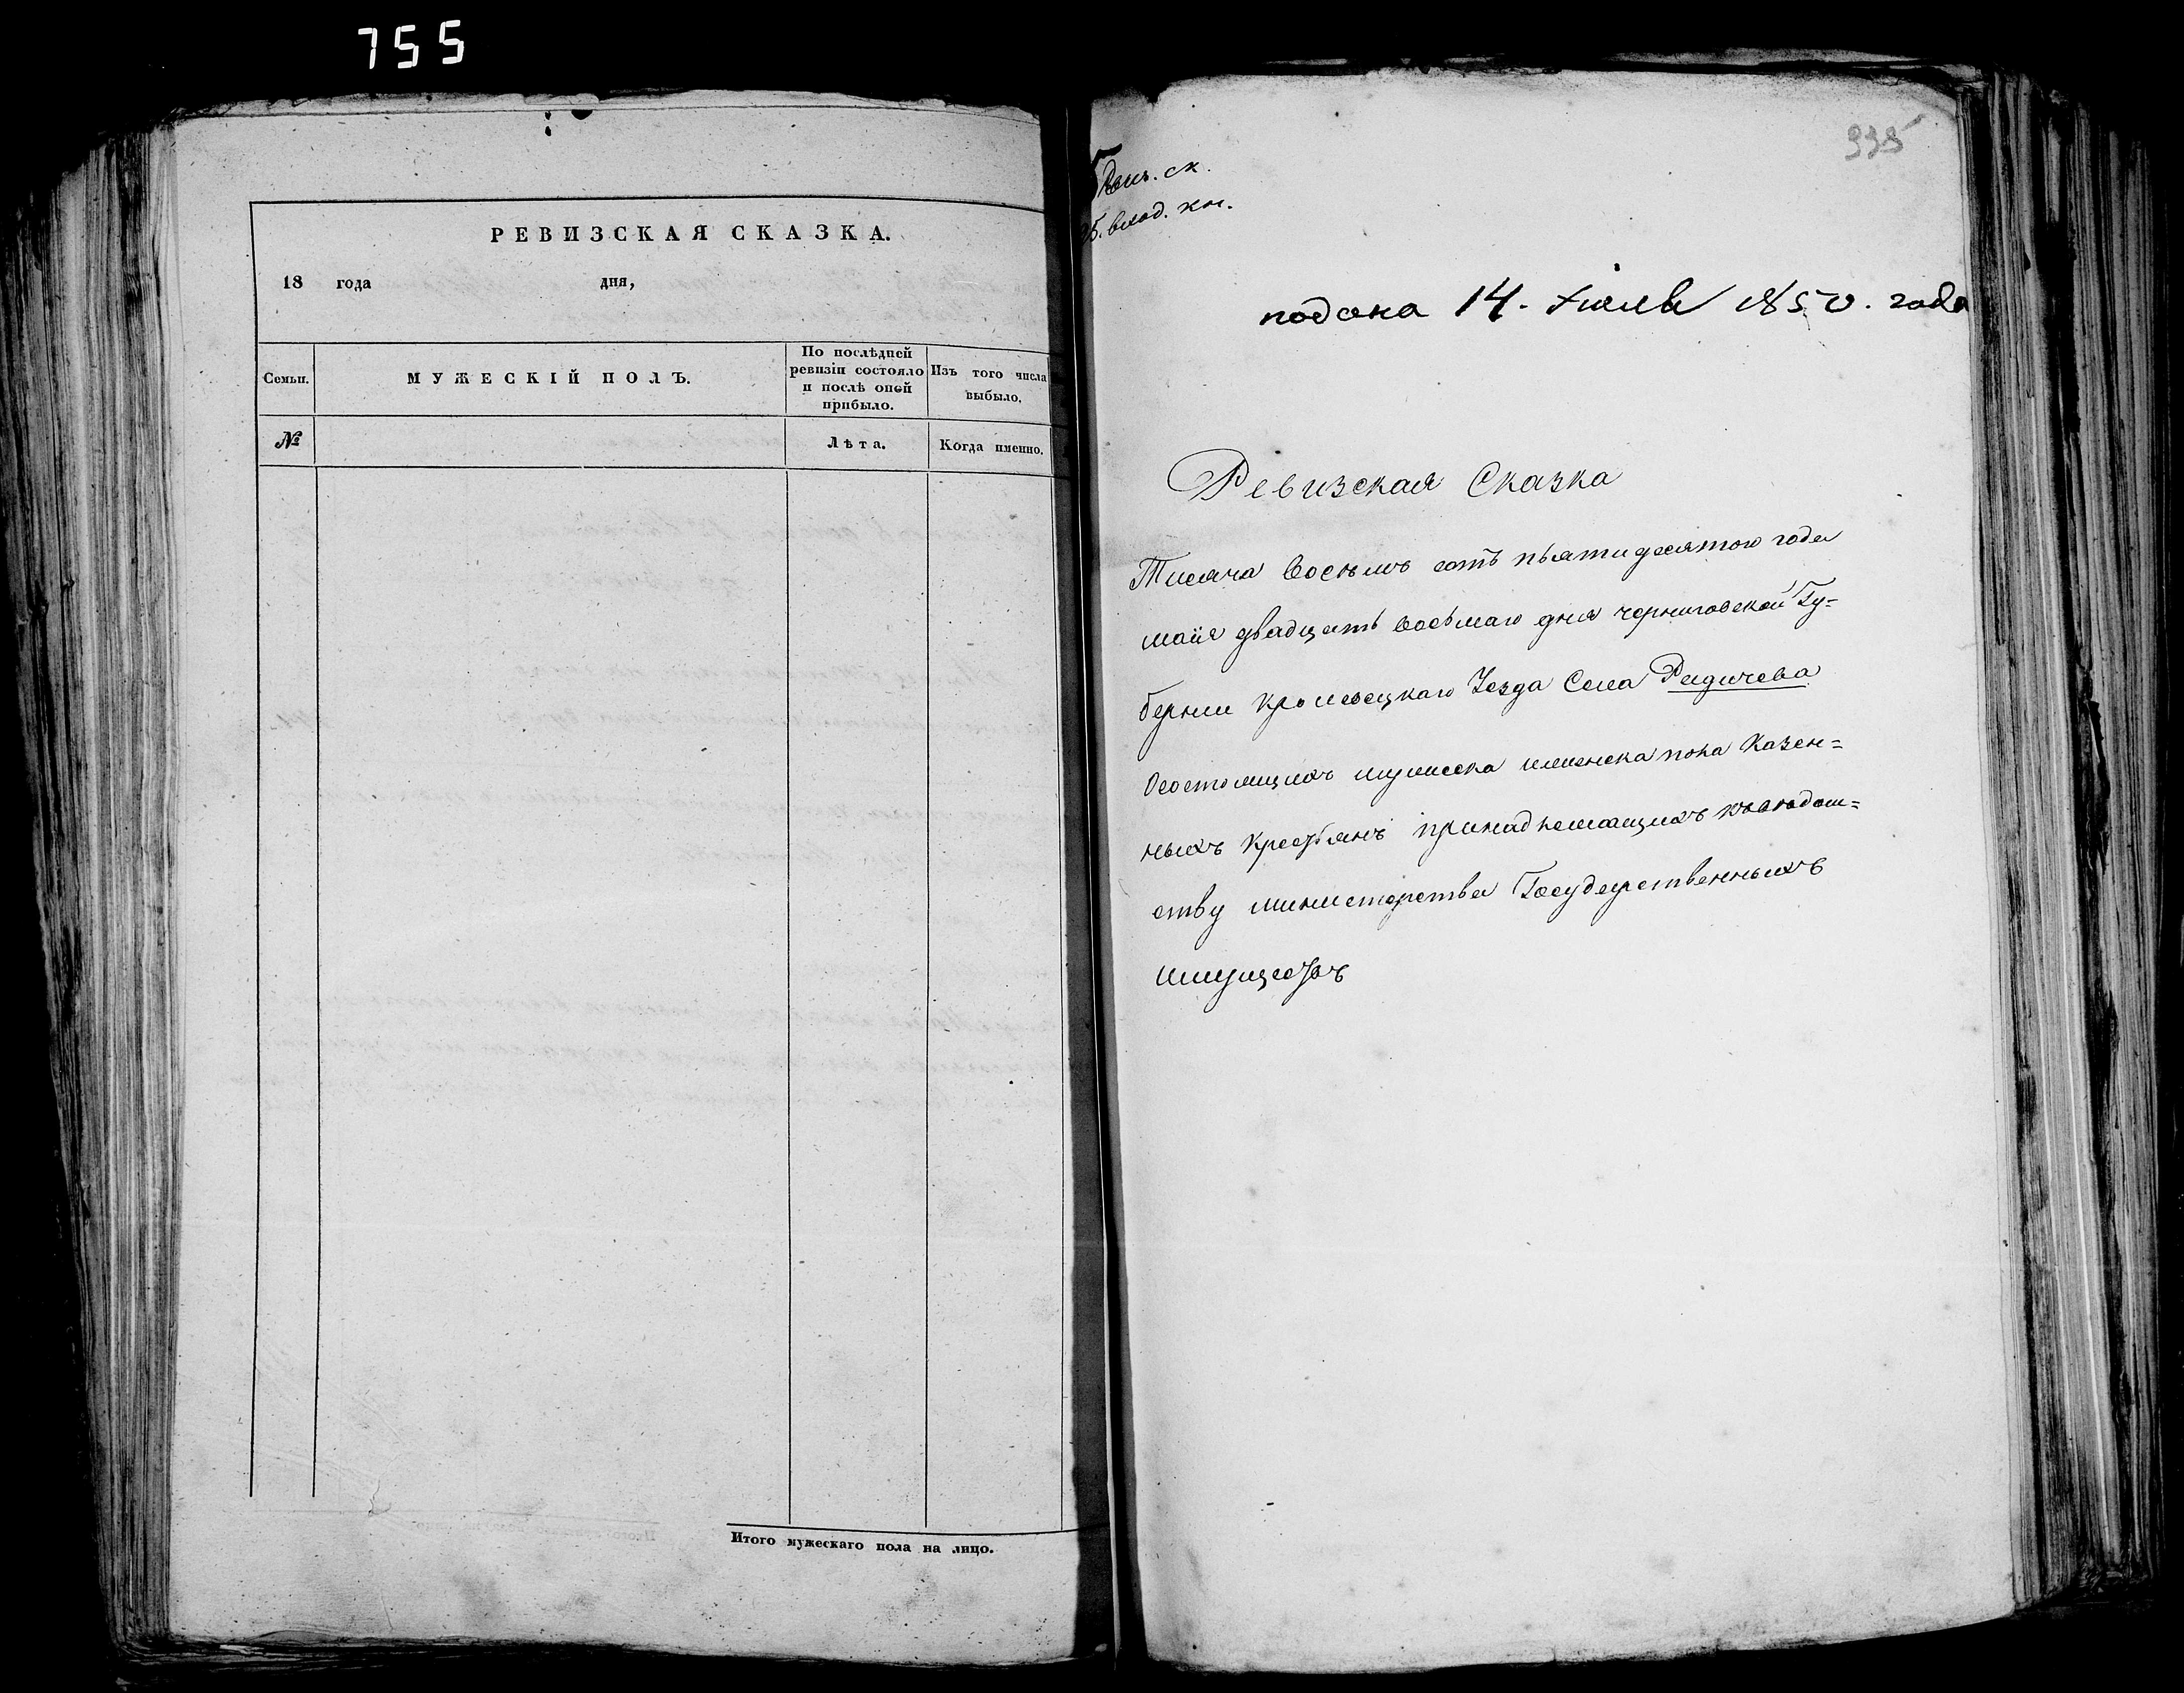 755
РЕВИЗСКАЯ СКАЗКА.
18 года дня,
Семьи.
МУЖЕСКІЙ ПОЛЪ.
По послѣдней ревизіи состояло и послѣ оной прибыло.
Изъ того числа выбыло.
№
Лѣта.
Когда именно.
Итого мужескаго пола на лицо.
ск.
вход. кн.
подана 14. Іюля 1850. года
Ревизская Сказка
Тисяча Восемъ сотъ пьятидесятого года
майя двадцать восьмаго дня черниговской Гу=
берніи Кролевецкаго Уезда Села Редичева
Осостоящихъ мужеска иженска пола Казен=
ныхъ Крестьянъ принадлежащихъ
ству министерства Государственныхъ
имуществъ